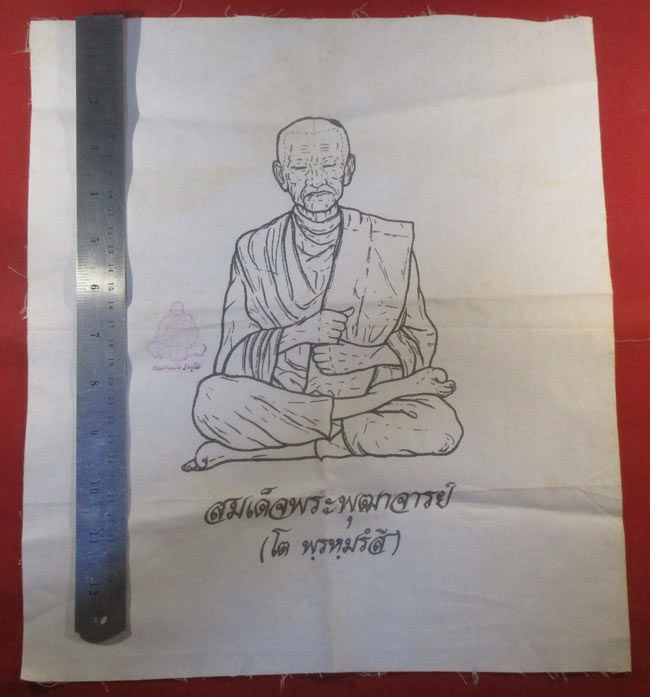 1
2
3
4
5
6
7
8
9
10
11
12
สมเด็จพระพุฒาจารย์
(โต พฺรหฺมรํสี)